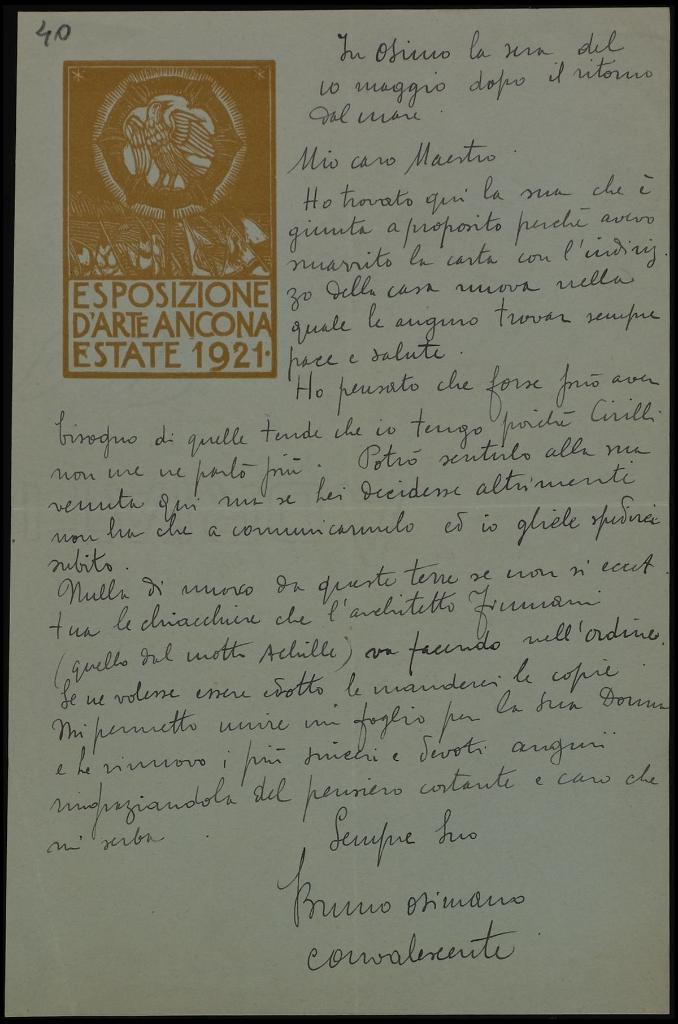 40
In Osimo la sera del
10 maggio dopo il ritorno
dal mare.
ESPOSIZIONE
D'ARTE ANCONA
ESTATE 1921.
Mio caro Maestro.
Ho trovato qui la sua che è
giunta a proposito perché avevo
smarrito la carta con l'indiriz-
zo della casa nuova nella
quale le auguro trovar sempre
pace e salute.
Ho pensato che forse può aver
bisogno di quelle tende che io tengo poiché Cirilli
non me ne parlò più. Potrò sentirlo alla sua
venuta qui ma se Lei decidesse altrimenti
non ha che a comunicarmelo ed io gliele spedirei
subito.
Nulla di nuovo da queste terre se non si eccet-
tua le chiacchiere che l'architetto
(quello dal motto Achille) va facendo nell'ordine.
Se ne volesse essere edotto le manderei le copie
Mi permetto unire un foglio per la Sua Donna
e Le rinnovo i più sinceri e devoti auguri
ringraziandola del pensiero costante e caro che
mi serba.
Sempre Suo
Bruno osimano
convalescente